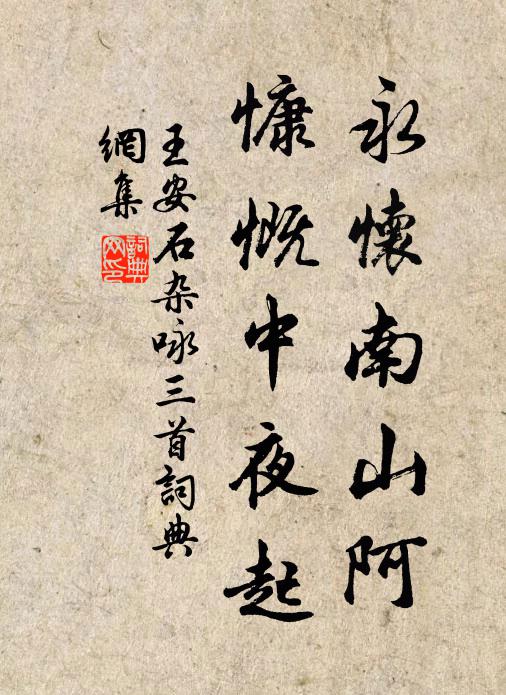 永懷南山阿
慷慨中夜起
王安石杂咏三首詞典
網集
詞典
网印